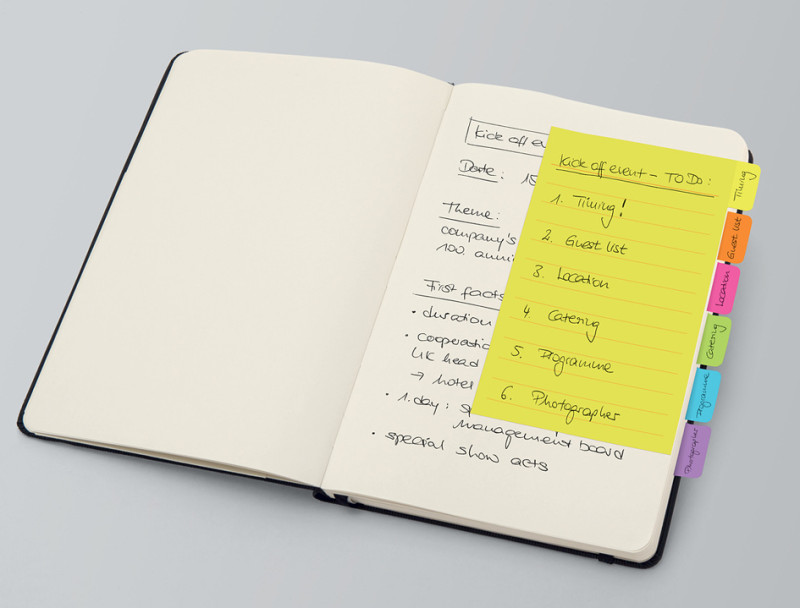 Kick off ev
Date: 15
Theme:
company's
100. anni
First facts
• duration
• cooperatio
UK head
→ hotel
• 1. day: sp
management board
• special show acts
Kick off event - TO DO:
1. Timing!
2. Guest list
3. Location
4. Catering
5. Programme
6. Photographer
Timing
Guest list
Location
Catering
Programme
Photographer